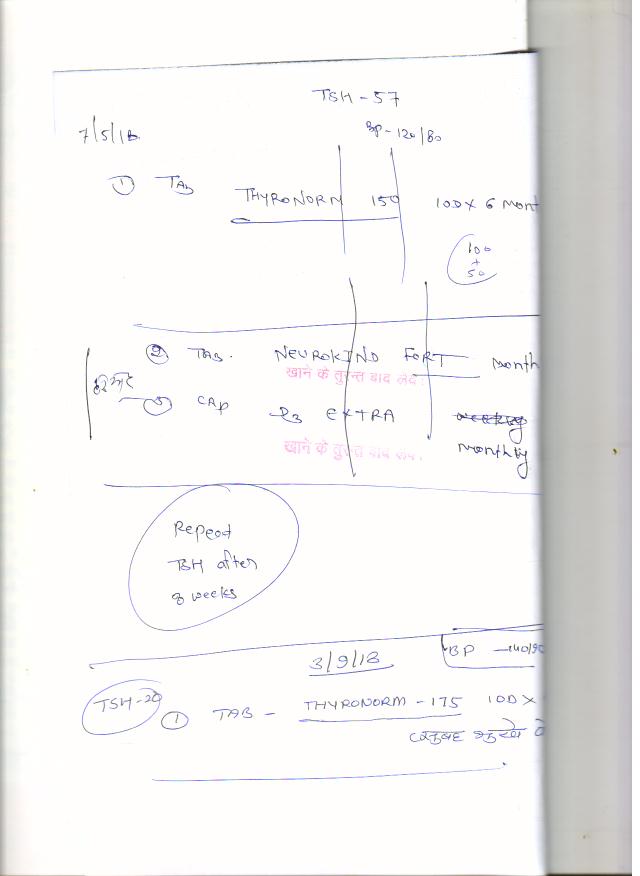 TSH - 57
7/5/18
BP - 120/80
① TAB THYRONORM 150 1OD X 6 Mont
100
+
50
② TAB. NEUROKIND FORT Month
खाने के तुरन्त बाद लेवे।
③ CAP D3 EXTRA weekly
खाने के तुरन्त बाद लेवे।
monthly
Repeat
TSH after
8 weeks
3/9/18
BP - 140/90
TSH-20
① TAB - THYRONORM - 175 1OD X
सुबह